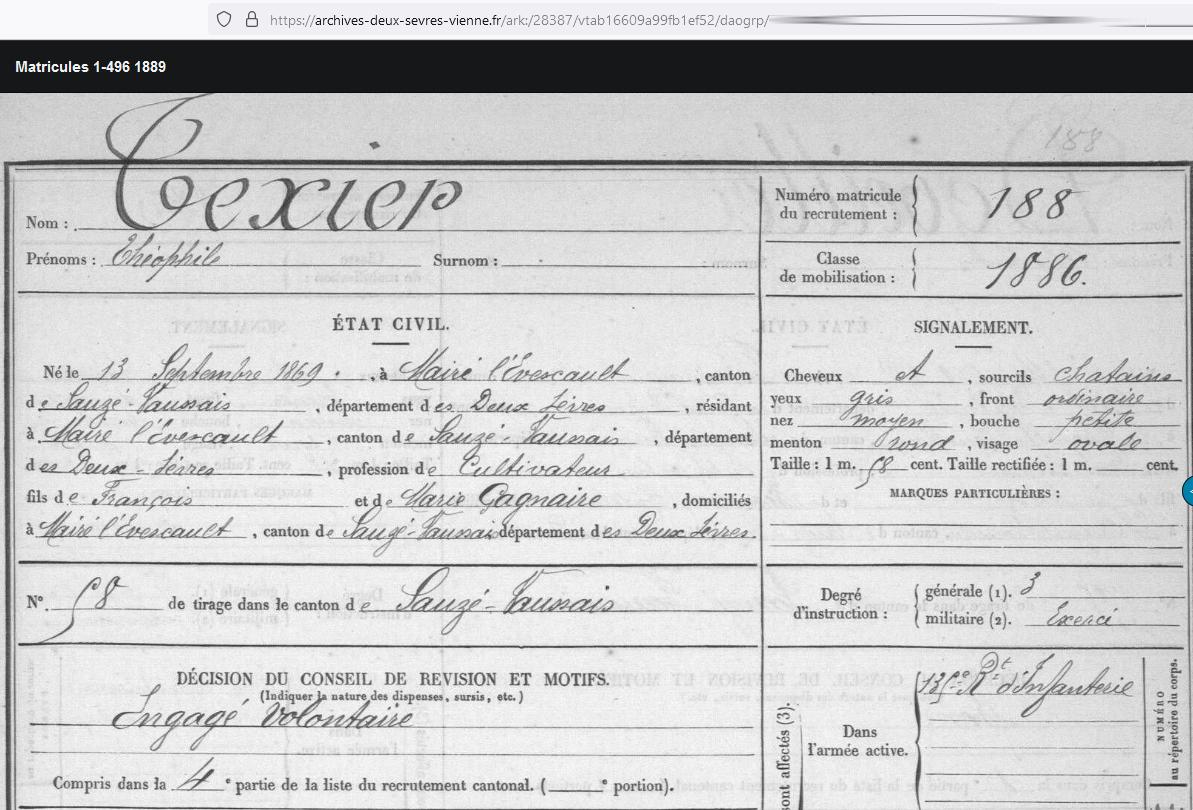 https://archives-deux-sevres-vienne.fr/ark:/28387/vtab16609a99fb1ef52/daogrp/
Matricules 1-496 1889
188
Nom : Texier
Prénoms : Théophile Surnom :
Numéro matricule
du recrutement : 188
Classe
de mobilisation : 1886.
ÉTAT CIVIL.
Né le 13 Septembre 1869 , à Mairé l'Evescault , canton
de Sauzé Vaussais , département des Deux Sèvres , résidant
à Mairé l'Evescault , canton de Sauzé-Vaussais , département
des Deux Sèvres , profession de Cultivateur
fils de François et de Marie Gagnaire , domiciliés
à Mairé l'Evescault , canton de Sauzé-Vaussais département des Deux Sèvres.
SIGNALEMENT.
Cheveux et , sourcils chatains
yeux gris , front ordinaire
nez moyen , bouche petite
menton rond , visage ovale
Taille : 1 m. 58 cent. Taille rectifiée : 1 m. cent.
MARQUES PARTICULIÈRES :
N°. 58 de tirage dans le canton de Sauzé-Vaussais
Degré
d'instruction :
générale (1). 3
militaire (2). Exercé
DÉCISION DU CONSEIL DE REVISION ET MOTIFS.
(Indiquer la nature des dispenses, sursis, etc.)
Engagé Volontaire
Compris dans la 4e partie de la liste du recrutement cantonal. ( e portion).
sont affectés (3).
Dans
l'armée active.
Rt d'Infanterie
NUMÉRO
au répertoire du corps.